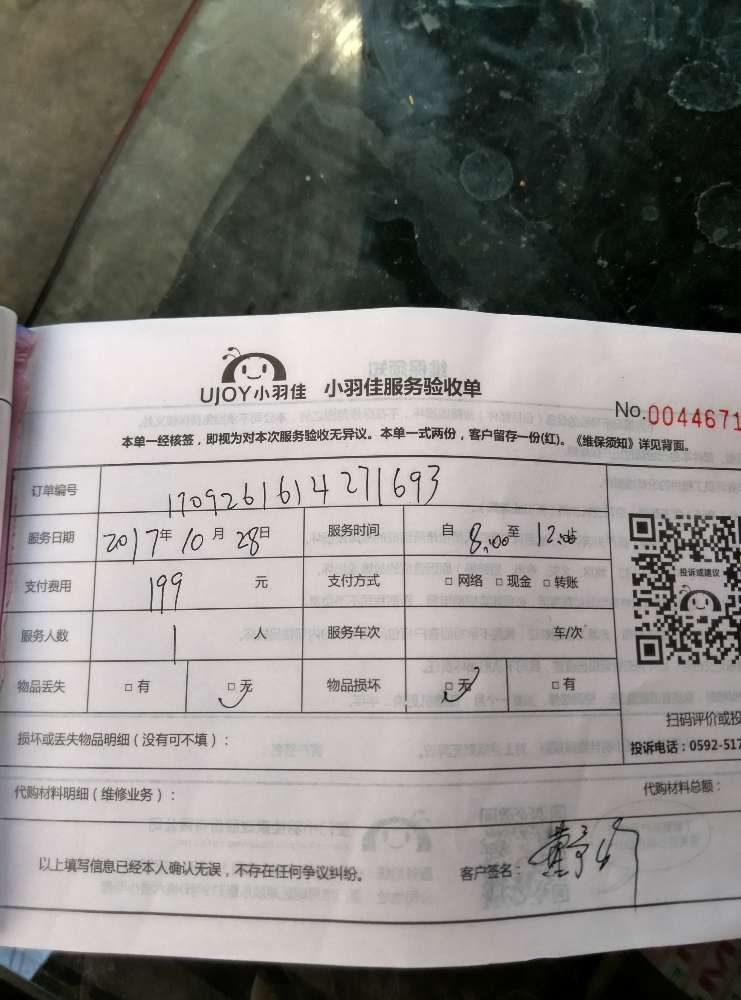 UJOY小羽佳 小羽佳服务验收单
No.0044671
本单一经核签，即视为对本次服务验收无异议。本单一式两份，客户留存一份(红)。《维保须知》详见背面。
订单编号 1709261614271693
服务日期 2017年 10 月 28日 服务时间 自 8:00至 12:00止
支付费用 199 元 支付方式 □网络 □现金 □转账
服务人数 1 人 服务车次 车/次
物品丢失 □有 □无 物品损坏 □无 □有
投诉或建议
扫码评价或投
投诉电话：0592-517
损坏或丢失物品明细（没有可不填）：
代购材料明细（维修业务）： 代购材料总额：
以上填写信息已经本人确认无误，不存在任何争议纠纷。 客户签名：